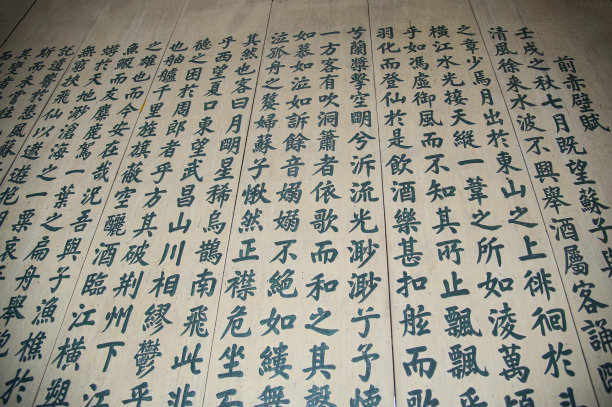 前赤壁賦
壬戌之秋七月既望蘇子與
清風徐來水波不興舉酒屬客誦明
之章少焉月出於東山之上徘徊於斗
橫江水光接天縱一葦之所如凌萬頃
乎如馮虛御風而不知其所止飄飄乎
羽化而登仙於是飲酒樂甚扣舷而歌
兮蘭槳擊空明兮泝流光渺渺兮予懷
一方客有吹洞簫者依歌而和之其聲
如慕如泣如訴餘音嫋嫋不絕如縷無
泣孤舟之嫠婦蘇子愀然正襟危坐而
其然也客曰月明星稀烏鵲南飛此非
乎西望夏口東望武昌山川相繆鬱乎
德之困於周郎者乎方其破荊州下江
也舳艫千里旌旗蔽空釃酒臨江橫槊
之雄也而今安在哉況吾與子漁樵於
魚蝦而友麋鹿駕一葉之扁舟舉匏
蜉於天地渺滄海之一粟哀
無窮挾飛仙以遨遊抱明月
託遺響於悲風